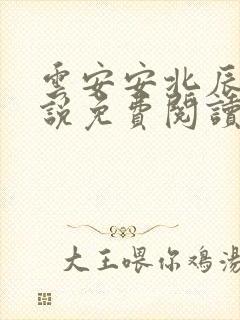 雲安安北辰
說免費閱讀
大王喂你鸡湯